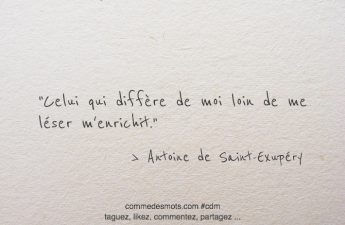 "Celui qui diffère de moi loin de me
léser m'enrichit."
> Antoine de Saint-Exupéry
commedesmots.com #cdm
taguez, likez, commentez, partagez ...